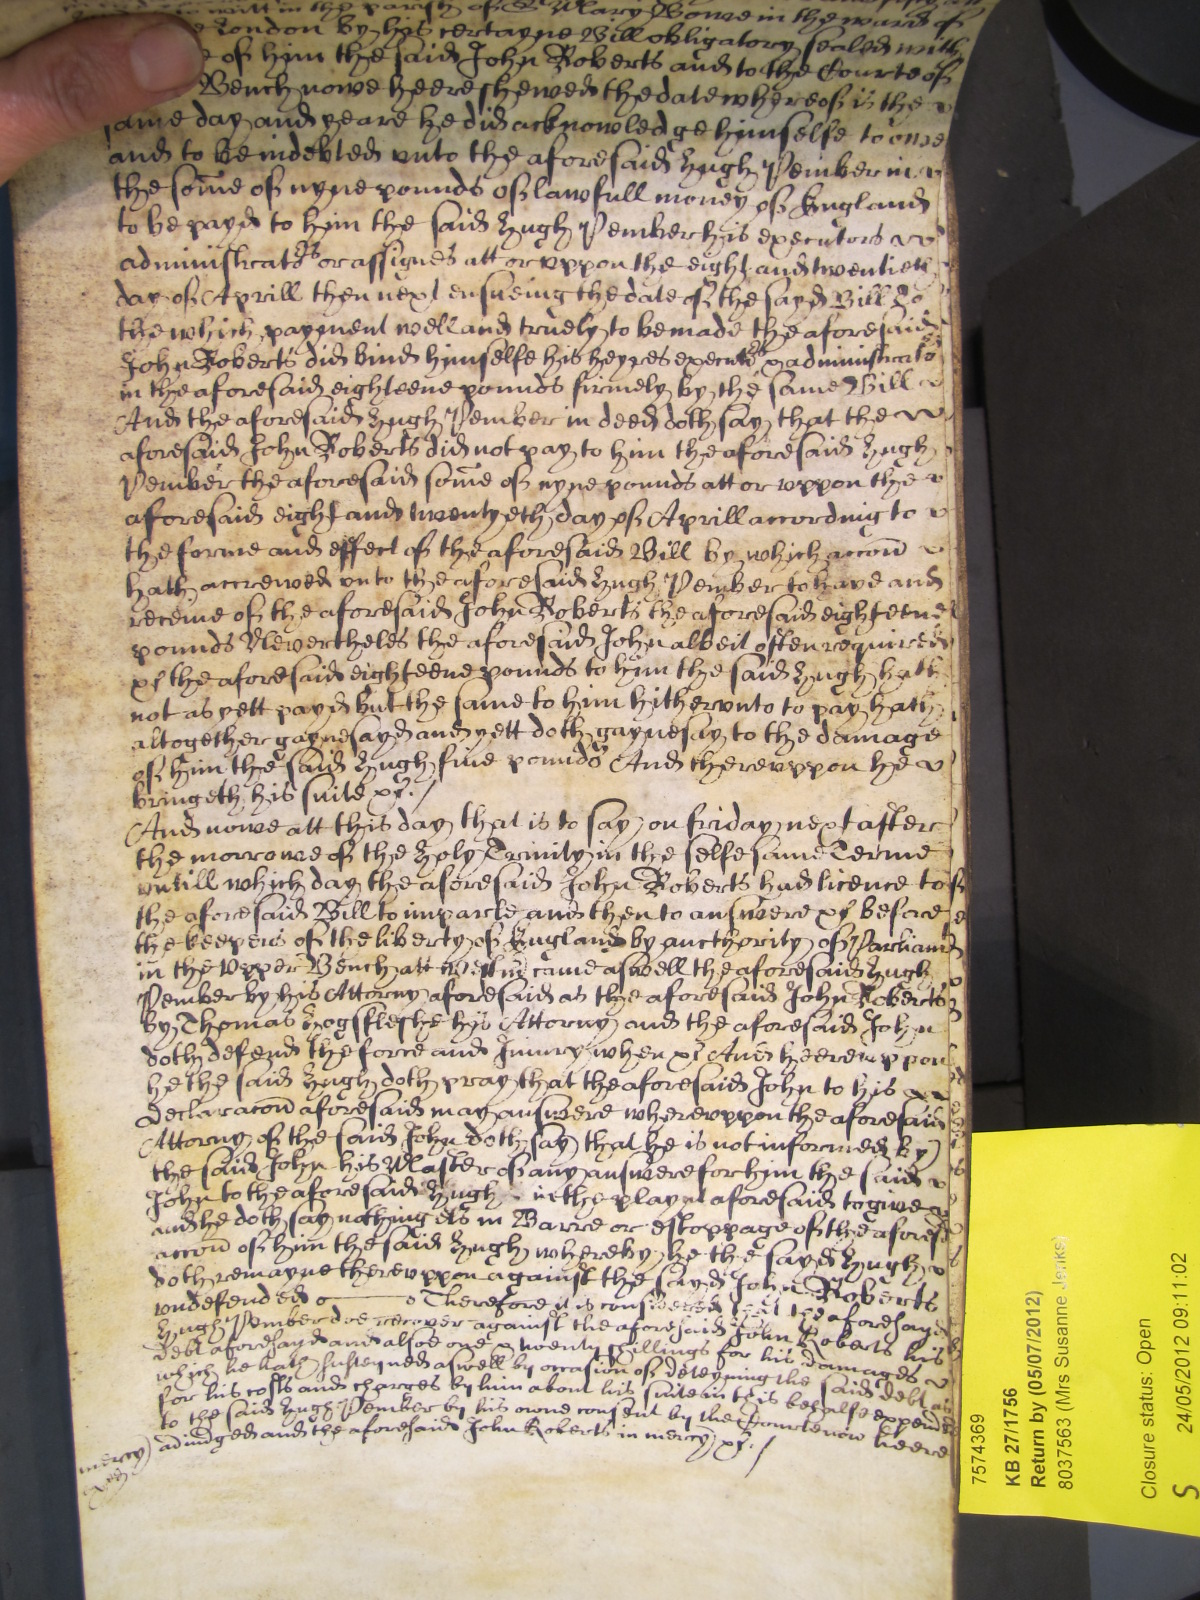 in the parish of St Mary Bowe in the warde of
London by his certayne Bill obligatory sealed with
of him the said John Roberts and to the Courte of
Bench nowe heere shewed the date whereof is the
same day and yeare he did acknowledge himselfe to owe
and to be indebted unto the aforesaid Hugh Pember in
the some of nyne pounds of lawfull money of England
to be payd to him the said Hugh Pember his executors
administrators or assignes att or uppon the eight and twentieth
day of Aprill then next ensueing the date of the sayd Bill To
the which payment well and truely to be made the aforesaid
John Roberts did bind himselfe his heyres executrs & administrators
in the aforesaid eighteene pounds firmely by the same Bill
And the aforesaid Hugh Pember in deed doth say that the
aforesaid John Roberts did not pay to him the aforesaid Hugh
Pember the aforesaid some of nyne pounds att or uppon the
aforesaid eight and twentyeth day of Aprill according to
the forme and effect of the aforesaid Bill by which accon
hath accrewed unto the aforesaid Hugh Pember to have and
receive of the aforesaid John Roberts the aforesaid eighteene
pounds Nevertheles the aforesaid John albeit often required
&c the aforesaid eighteene pounds to him the said Hugh hath
not as yett payd but the same to him hitherunto to pay hath
altogether gaynesayd and yett doth gaynesay to the damage
of him the said Hugh five pounds And thereuppon he
bringeth his suite &c. /
And nowe att this day that is to say on friday next after
the morrowe of the holy Trinity in the selfe same Terme
untill which day the aforesaid John Roberts had licence to
the aforesaid Bill to imparle and then to answere &c before
the keepers of the liberty of England by aucthority of Parliamt
in the Upper Bench att Westm came aswell the aforesaid Hugh
Pember by his Attorny aforesaid as the aforesaid John Roberts
by Thomas Hogsfleshe his Attorny and the aforesaid John
doth defend the force and Iniury when &c And heereuppon
he the said Hugh doth pray that the aforesaid John to his
declaracon aforesaid may answere whereuppon the aforesaid
Attorny of the said John doth say that he is not informed by
the said John his Master of any answere for him the said
John to the aforesaid Hugh in the playnt aforesaid to give
and he doth say nothing els in Barre or estoppage of the aforesd
accon of him the said Hugh whereby he the sayd Hugh
doth remayne thereuppon against the sayd John Roberts
undefended Therefore it is considered that the aforesayd
Hugh Pember doe recover against the aforesaid John Roberts his
debt aforesayd and alsoe one & twenty shillings for his damages
which he hath susteyned aswell by occasion of deteyning the said debt as
for his costs and charges by him about his suite in this behalfe expended
to the said Hugh Pember by his owne consent by the Courte now heere
adiudged and the aforesaid John Roberts in mercy &c. /
mercy
7574369
KB 27/1756
Return by (05/07/2012)
8037563 (Mrs Susanne Jenks)
Closure status: Open
24/05/2012 09:11:02
S